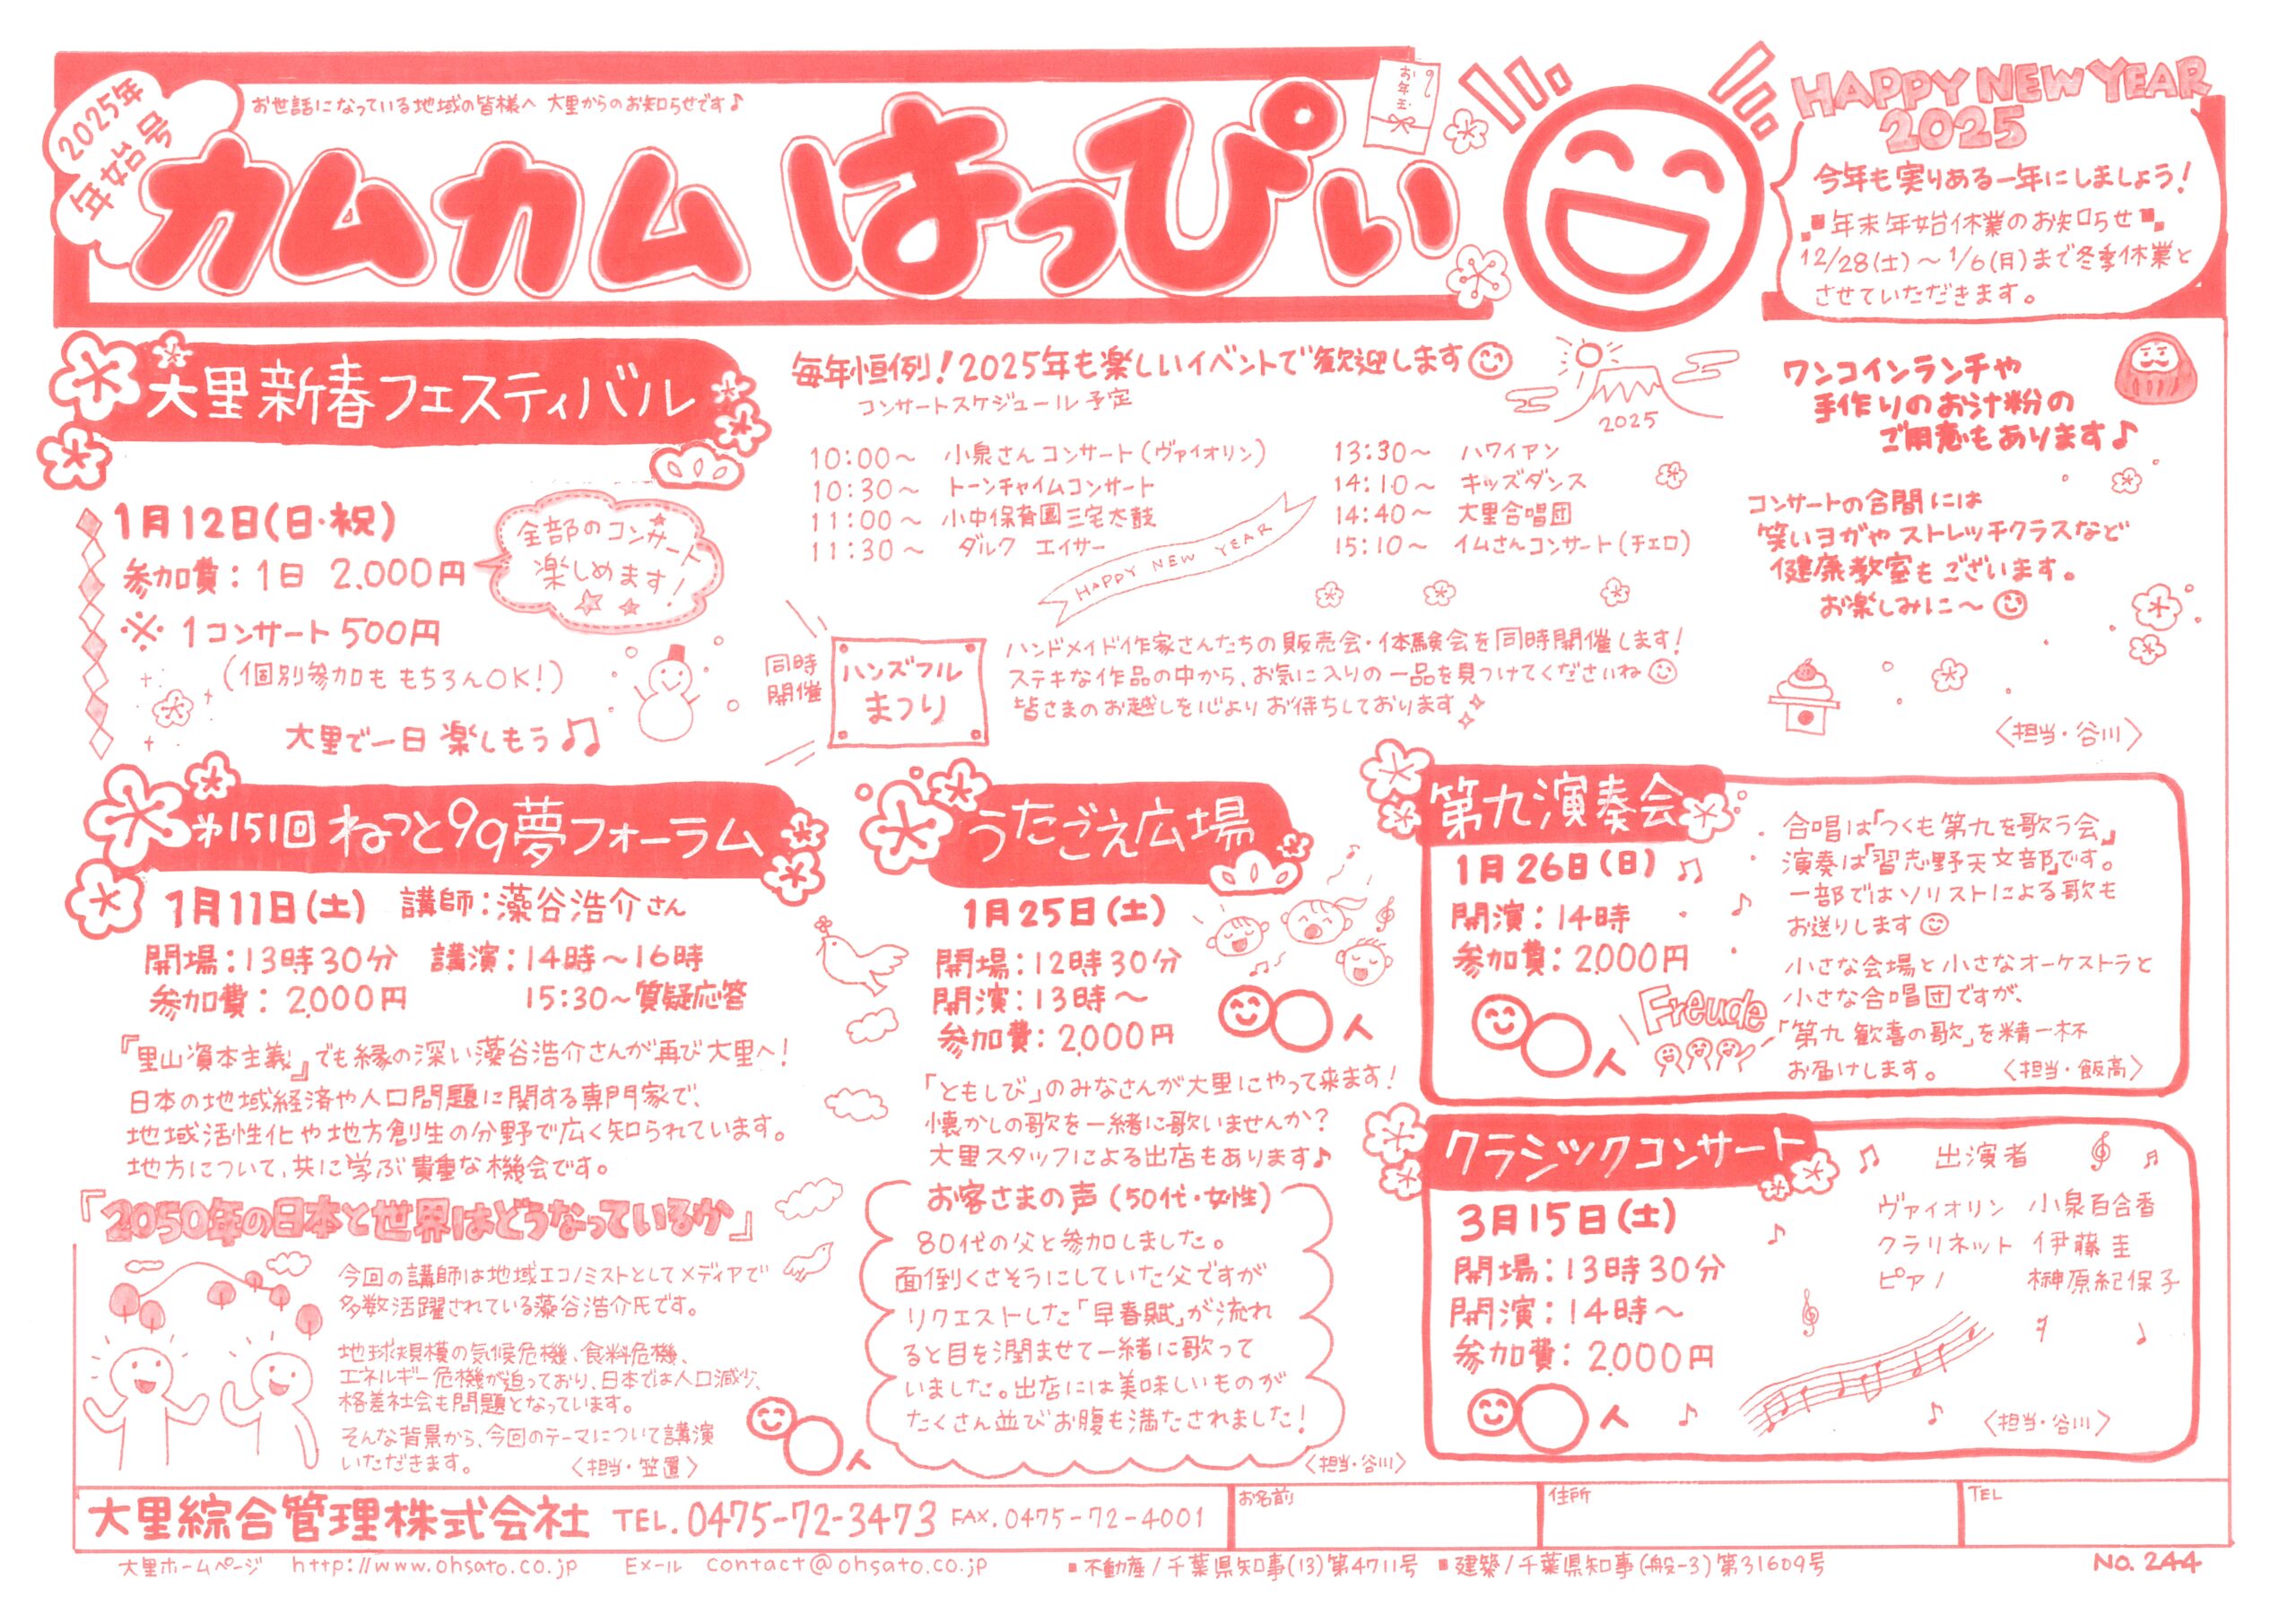 2025年
年始号
お世話になっている地域の皆様へ 大里からのお知らせです♪
カムカム はっぴぃ
のし
お年玉
HAPPY NEW YEAR
2025
今年も実りある一年にしましょう!
年末年始休業のお知らせ
12/28(土)～1/6(月)まで冬季休業と
させていただきます。
大里新春フェスティバル
1月12日(日・祝)
参加費：1日 2.000円
※ 1コンサート500円
(個別参加も もちろんOK!)
全部のコンサート
楽しめます!
大里で一日 楽しもう♫
毎年恒例! 2025年も楽しいイベントで歓迎します
コンサートスケジュール予定
10:00～ 小泉さんコンサート(ヴァイオリン)
10:30～ トーンチャイムコンサート
11:00～ 小中保育園三宅太鼓
11:30～ ダルク エイサー
13:30～ ハワイアン
14:10～ キッズダンス
14:40～ 大里合唱団
15:10～ イムさんコンサート(チェロ)
HAPPY NEW YEAR
2025
ワンコインランチや
手作りのお汁粉の
ご用意もあります♪
コンサートの合間には
笑いヨガやストレッチクラスなど
健康教室もございます。
お楽しみに～
〈担当・谷川〉
同時
開催
ハンズフル
まつり
ハンドメイド作家さんたちの販売会・体験会を同時開催します!
ステキな作品の中から、お気に入りの一品を見つけてくださいね
皆さまのお越しを心よりお待ちしております
第151回 ねっと99夢フォーラム
1月11日(土) 講師：藻谷浩介さん
開場：13時30分 講演：14時～16時
参加費：2.000円 15:30～質疑応答
『里山資本主義』でも縁の深い藻谷浩介さんが再び大里へ!
日本の地域経済や人口問題に関する専門家で、
地域活性化や地方創生の分野で広く知られています。
地方について、共に学ぶ貴重な機会です。
『2050年の日本と世界はどうなっているか』
今回の講師は地域エコノミストとしてメディアで
多数活躍されている藻谷浩介氏です。
地球規模の気候危機、食料危機、
エネルギー危機が迫っており、日本では人口減少、
格差社会も問題となっています。
そんな背景から、今回のテーマについて講演
いただきます。
〈担当・笠置〉
人
うたごえ広場
1月25日(土)
開場：12時30分
開演：13時～
参加費：2,000円
人
「ともしび」のみなさんが大里にやって来ます!
懐かしの歌を一緒に歌いませんか?
大里スタッフによる出店もあります♪
お客さまの声(50代・女性)
80代の父と参加しました。
面倒くさそうにしていた父ですが
リクエストした「早春賦」が流れ
ると目を潤ませて一緒に歌って
いました。出店には美味しいものが
たくさん並びお腹も満たされました!
〈担当・谷川〉
第九演奏会
1月26日(日)
開演：14時
参加費：2000円
人
Freude
合唱は「つくも第九を歌う会」
演奏は「習志野天文部」です。
一部ではソリストによる歌も
お送りします
小さな会場と小さなオーケストラと
小さな合唱団ですが、
「第九 歓喜の歌」を精一杯
お届けします。 〈担当・飯高〉
クラシックコンサート
3月15日(土)
開場：13時30分
開演：14時～
参加費：2000円
人
出演者
ヴァイオリン 小泉百合香
クラリネット 伊藤圭
ピアノ 榊原紀保子
〈担当・谷川〉
大里綜合管理株式会社 TEL.0475-72-3473 FAX.0475-72-4001
お名前
住所
TEL
大里ホームページ http://www.ohsato.co.jp Eメール contact@ohsato.co.jp ■不動産/千葉県知事(13)第4711号 ■建築/千葉県知事(般-3)第31609号
No.244